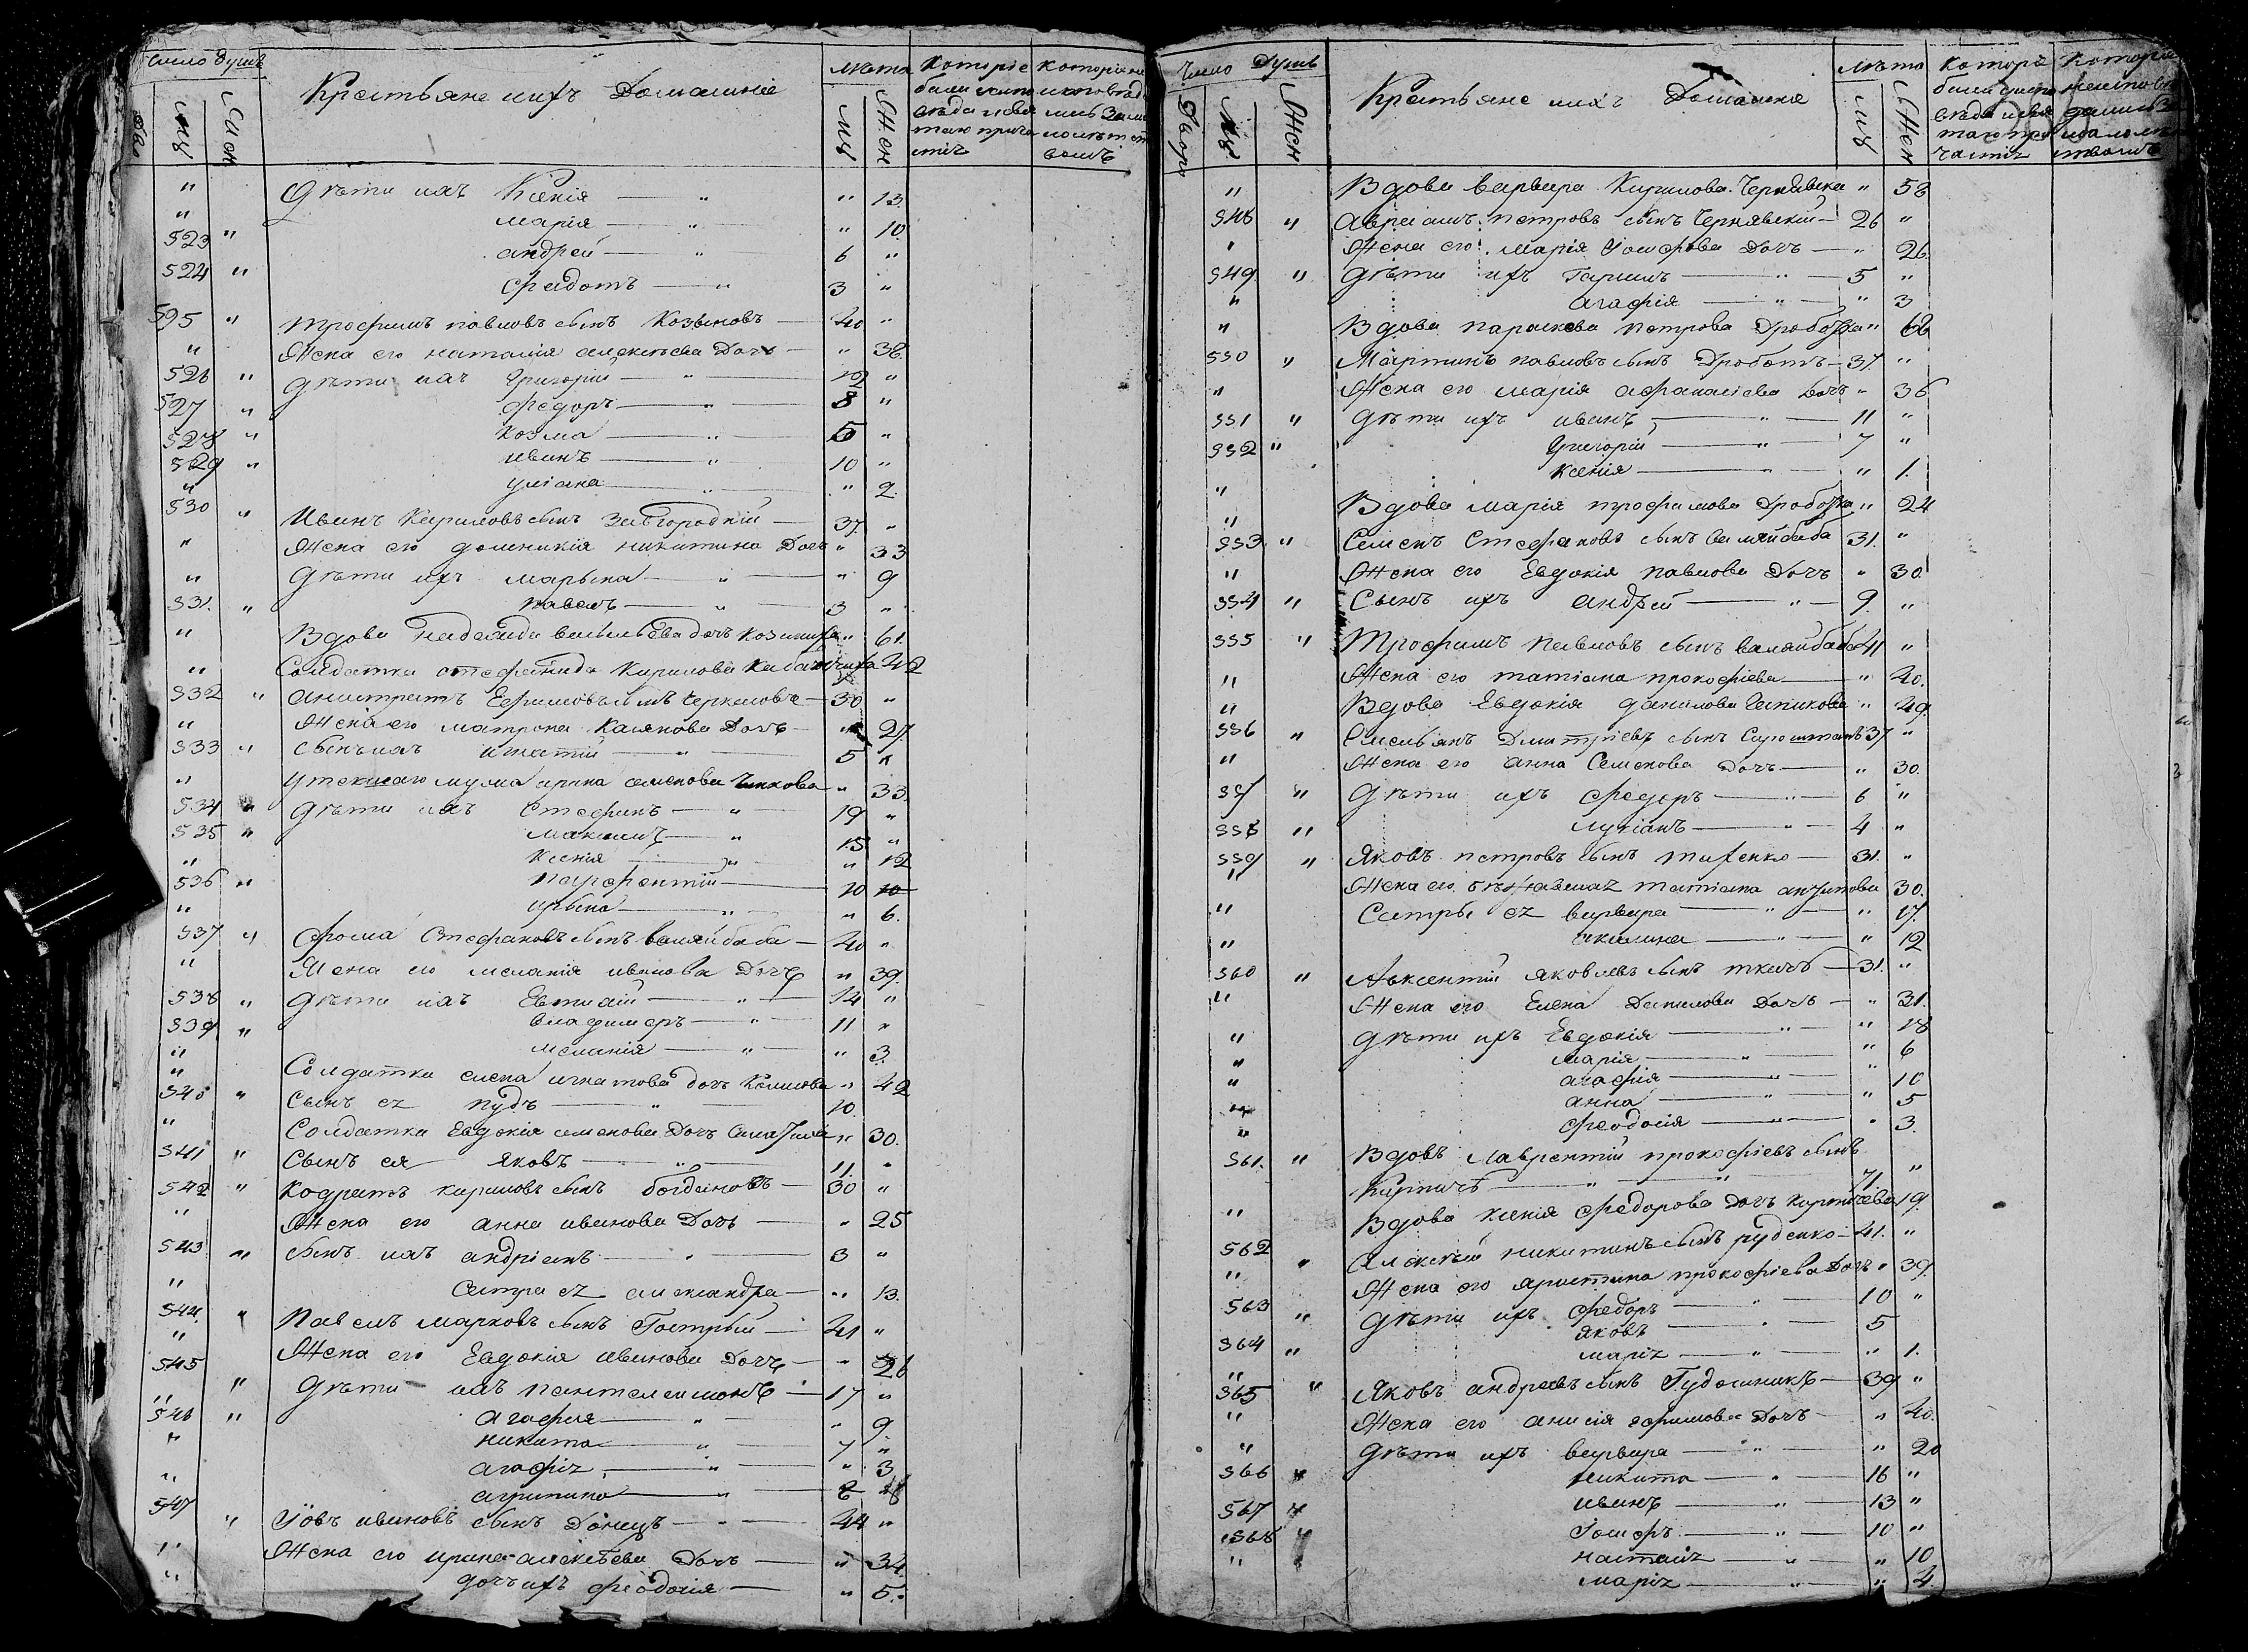 Число душъ
Крестьяне ихъ Домашніе
Лѣта
Которіе
Которіе не
Муж
Жен
Муж
Жен
" Дѣти ихъ Ксенія — " " 13.
" Марія — " " 10.
523 " андрей — " 6 "
524 " Федотъ — " 3 "
525 " Трофимъ павловъ сынъ Козыновъ — 40 "
" Жена его наталія алексѣева Дочь — " 38.
526 " Дѣти ихъ Григорій — " 12 "
527 " Федоръ — " 8 "
528 " Козма — " 5 "
529 " иванъ — " 10 "
" уліана — " " 2.
530 " Иванъ Кириловъ сынъ Завгородній — 37. "
" Жена его доминикія никитина Дочь " 33
" Дѣти ихъ марина — " " 9
531. " павелъ — " 3 "
" Вдова надежда васильева дочь " 61.
" Солдатка стефанида Кирилова 42
532 " Ефимовъ сынъ 30 "
" Жена его матрона Дочь — " 27
533 " сынъ ихъ игнатій — " 5 "
" ирина семенова " 33.
534 " Дѣти ихъ Стефанъ — " 19 "
535 " Максимъ — " 15 "
" Ксенія — " " 12
536 " парфентій — 10
" ирына — " " 6.
537 " Фома Стефановъ сынъ Валяйбаба — 40 "
" Жена его меланія иванова Дочь " 39.
538 " Дѣти ихъ Евтихій — " 14 "
539 " владимеръ — " 11 "
" меланія — " " 3.
" Солдатка елена игнатова дочь " 42
540 " Сынъ ея — " 10.
" Солдатка Евдокія семенова Дочь " 30.
541 " Сынъ ея Яковъ — " 11. "
542 " Кодратъ кириловъ сынъ богдановъ — 30 "
" Жена его анна иванова Дочь — " 25
543 " сынъ ихъ андріанъ — " 3 "
" Сестра ея александра — " 13.
544 " Павелъ марковъ сынъ Гострый — 41 "
" Жена его Евдокія иванова Дочь — " 26
545 " Дѣти ихъ пантелеимонъ — 17 "
" агафия — " " 9.
546 " никита — " 7 "
" агафія — " " 3
" агрипина — "
547 " Іовъ ивановъ сынъ Донецъ — " 44 "
" Жена его ирина алексѣева Дочь — " 34.
" дочь ихъ феодосія — " 5.
Число Душъ
Крестьяне ихъ Домашніе
Лѣта
Двор
Муж
Жен
Муж
Жен
" Вдова варвара Кирилова Чернявска " 58
548 " Авраамъ петровъ сынъ Чернявскій — 26 "
" Жена его марія Іосифова Дочь — " 26.
549 " Дѣти ихъ — " 5 "
" агафія — " " 3
" Вдова параскева петрова " 62
550 " Мартинъ павловъ сынъ Дроботъ — 37. "
" Жена его марія афанасіева Дочь " 36
551 " Дѣти ихъ иванъ — " 11 "
552 " Григорій — " 7 "
" Ксенія — " " 1.
" Вдова марія трофимова " 24
553 " Семенъ Стефановъ сынъ Валяйбаба 31. "
" Жена его Евдокія павлова Дочь " 30.
554 " Сынъ ихъ андрей — " 9. "
555 " Трофимъ павловъ сынъ валяйбаба 41 "
" Жена его татіана прокофіева — " 40.
" Вдова Евдокія данилова " 49.
556 " Емельянъ Дмитріевъ сынъ 37 "
" Жена его анна Семенова Дочь — " 30.
557 " Дѣти ихъ Федоръ — " 6 "
558 " Лукіанъ — " 4 "
559 " Яковъ петровъ сынъ — 31. "
" Жена его татіана 30.
" Сестры ея варвара — " " 17.
" акилина — " " 12
560 " Авксентій яковлевъ сынъ ткачъ — 31. "
" Жена его Елена Данилова Дочь — " 31.
" Дѣти ихъ Евдокія — " " 18
" марія — " " 6
" агафія — " " 10
" анна — " " 5
" феодосія — " " 3.
561. " Вдовъ Лаврентій прокофіевъ сынъ
Кирпичъ — " 71. "
" Вдова ксенія федорова дочь кирпичева 19.
562 " Алексѣй никитинъ сынъ руденко — 41. "
" Жена его христина прокофіева Дочь " 39.
563 " Дѣти ихъ Федоръ — " 10 "
564 " яковъ — " 5
" марія — " " 1.
565 " Яковъ андреевъ сынъ Гудошникъ — 39 "
" Жена его анисія ефимова Дочь " 40.
" Дѣти ихъ варвара — " " 20
566 " никита — " 16 "
567 " иванъ — " 13 "
568 " Іосифъ — " 10 "
" настасія — " " 10
" марія — " " 4.